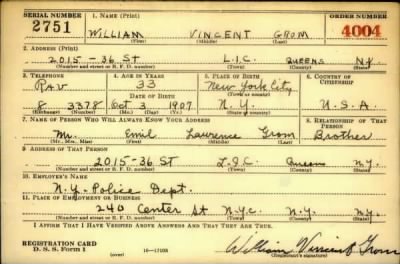 SERIAL NUMBER 1. NAME (Print) ORDER NUMBER
2751 WILLIAM VINCENT GROM 4004
(First) (Middle) (Last)
2. ADDRESS (Print)
2015-36 ST L.I.C. QUEENS N.Y.
(Number and street or R. F. D. number) (Town) (County) (State)
3. TELEPHONE 4. AGE IN YEARS 5. PLACE OF BIRTH 6. COUNTRY OF CITIZENSHIP
RAV 33 New York City
DATE OF BIRTH (Town or county)
8 3378 Oct 3 1907 N.Y. U.S.A
(Exchange) (Number) (Mo.) (Day) (Yr.) (State or country)
7. NAME OF PERSON WHO WILL ALWAYS KNOW YOUR ADDRESS 8. RELATIONSHIP OF THAT PERSON
Mr. Emil Lawrence Grom Brother
(Mr., Mrs., Miss) (First) (Middle) (Last)
9. ADDRESS OF THAT PERSON
2015-36 ST L.I.C. Queens N.Y.
(Number and street or R. F. D. number) (Town) (County) (State)
10. EMPLOYER'S NAME
N.Y. Police Dept.
11. PLACE OF EMPLOYMENT OR BUSINESS
240 Center St N.Y.C. N.Y. N.Y.
(Number and street or R. F. D. number) (Town) (County) (State)
I AFFIRM THAT I HAVE VERIFIED ABOVE ANSWERS AND THAT THEY ARE TRUE.
REGISTRATION CARD
D. S. S. Form 1 (over) William Vincent Grom
(Registrant's signature)